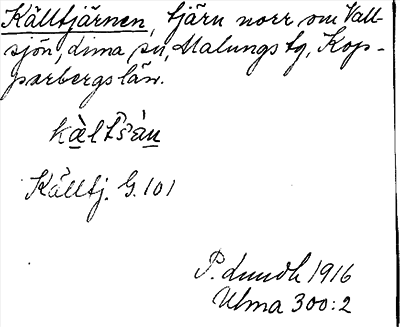 Källtjärnen, tjärn norr om Vall-
sjön, Lima sn, Malungs tg, Kop-
parbergs län.
kàltšàn
Källtj. G. 101
P. Lundh 1916
Ulma 300:2